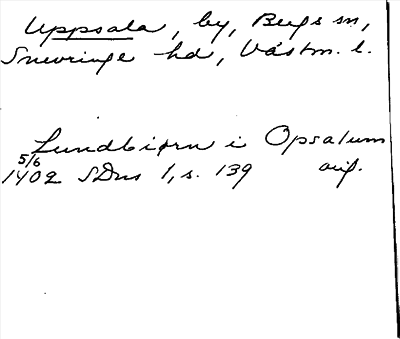 Uppsala, by, Bergs sn,
Snevringe hd, Västm. l.
Lundbiørn i Opsalum
5/6
1402 SDns 1, s. 139 orig.